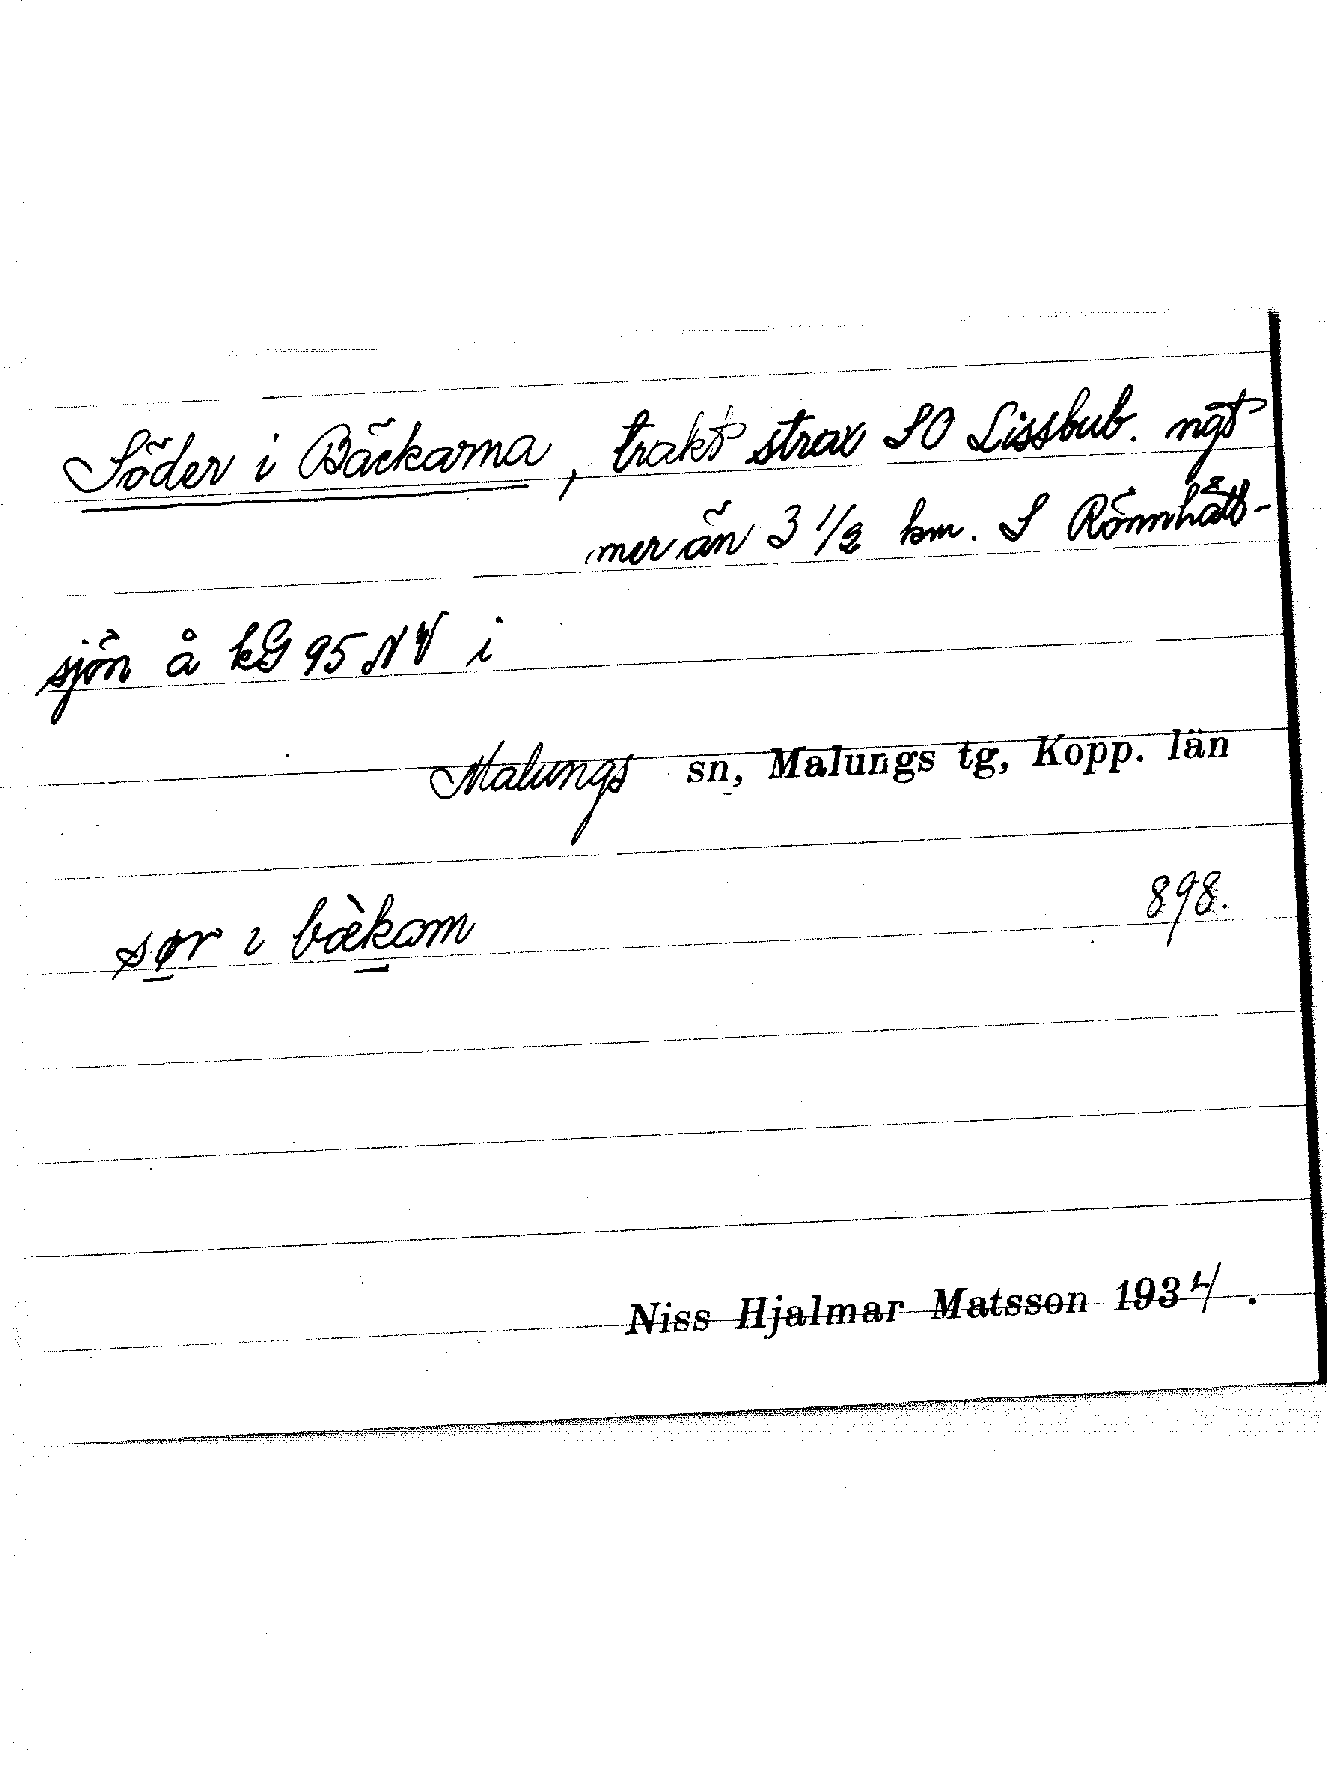 Söder i Bäckarna, trakt strax SO Lissbub. ngt
mer än 3 1/2 km. S Rönnhätt-
sjön å kG 95 NV i
Malungs sn, Malungs tg, Kopp. län
898.
sør ı bæ̀kam
Niss Hjalmar Matsson 1934.